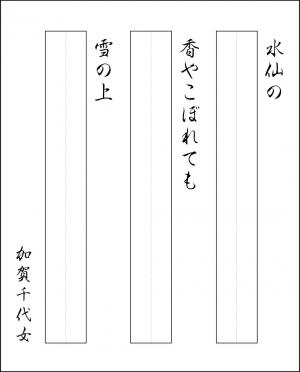 水仙の
香やこぼれても
雪の上
加賀千代女